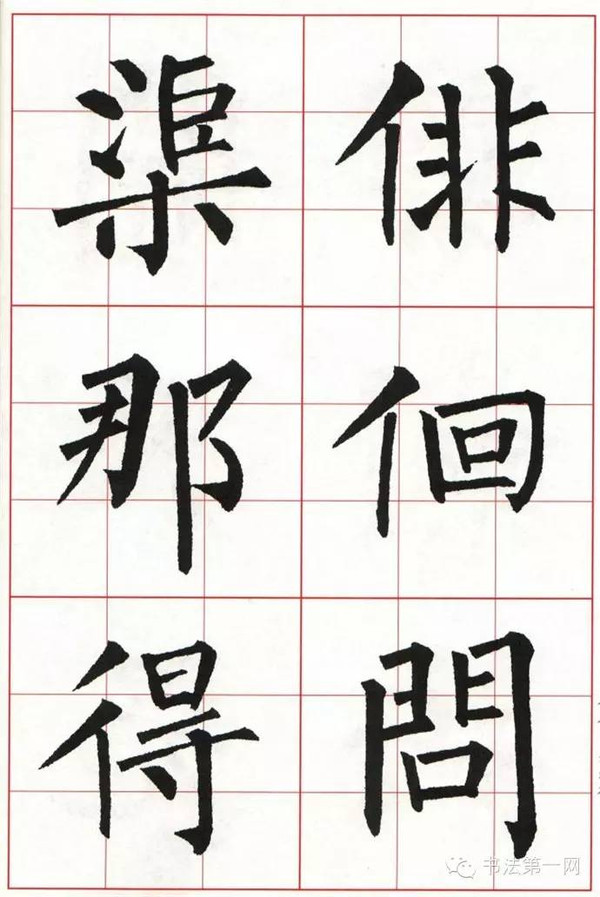 俳佪問
渠那得
书法第一网